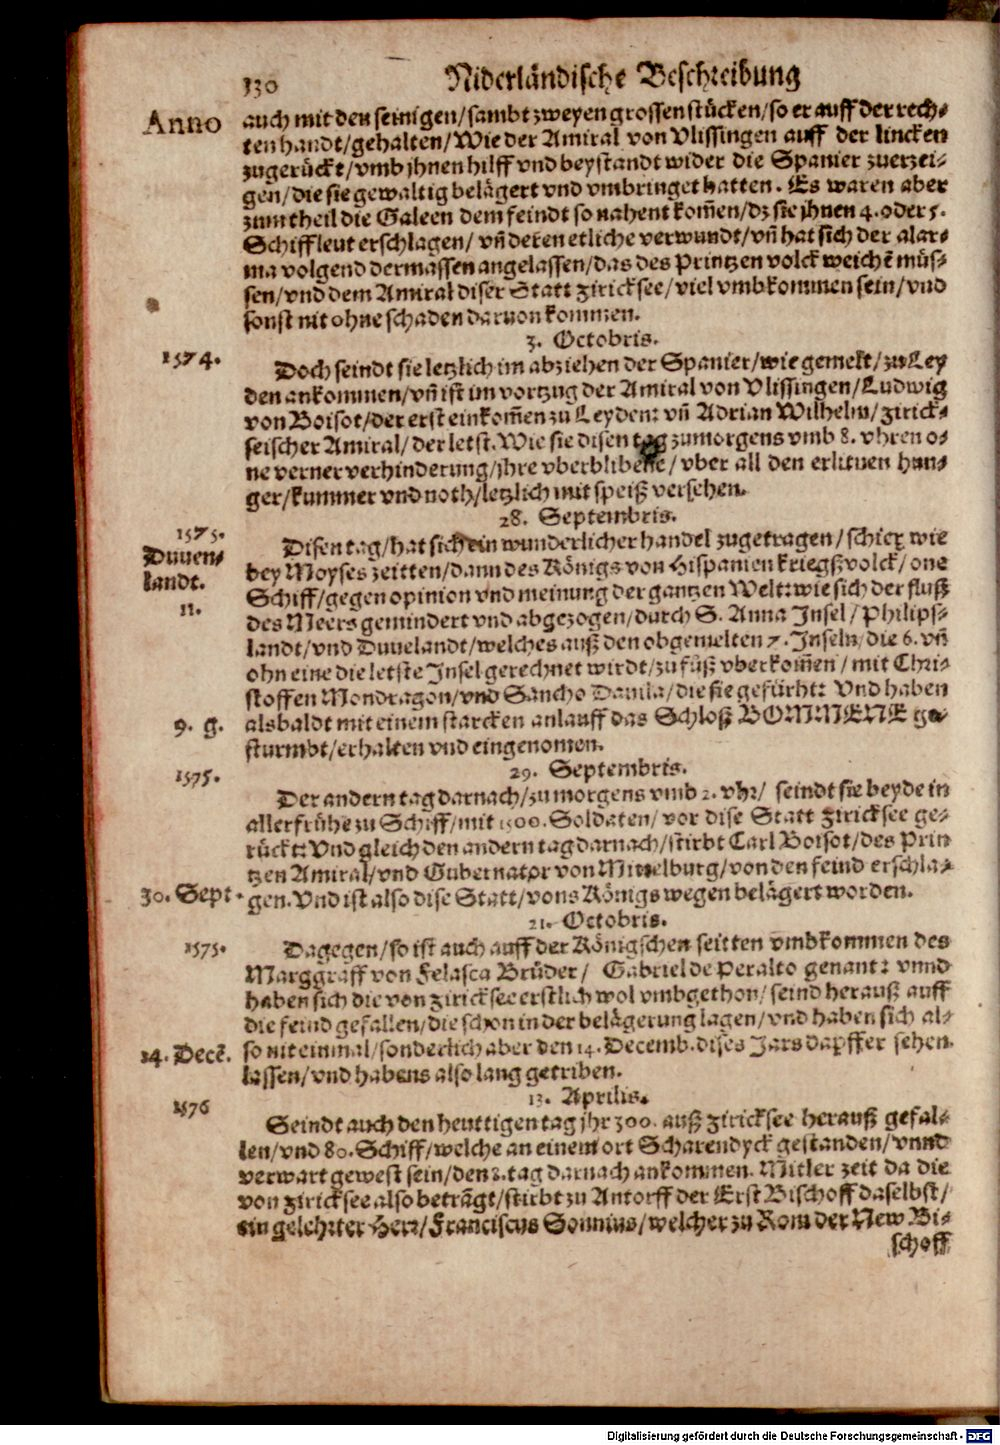 130 Niderländische Beschreibung
Anno
auch mit den seinigen/sambt zweyen grossen stücken/so er auff der rech-
ten handt/gehalten/Wie der Amiral von Vlissingen auff der lincken
zugerückt/vmb jhnen hilff vnd beystandt wider die Spanier zuerzei-
gen/die sie gewaltig belägert vnd vmbringet hatten. Es waren aber
zum theil die Galeen dem feindt so nahent kom̄en/dz sie jhnen 4. oder 5.
Schiffleut erschlagen/ vn̄ deren etliche verwundt/vn̄ hat sich der alar-
ma volgend dermassen angelassen/das des Printzen volck weichē müs-
sen/vnd dem Amiral diser Statt Zircksee/viel vmbkommen sein/vnd
sonst nit ohne schaden daruon kommen.
3. Octobris.
1574.
Doch seindt sie letzlich im abziehen der Spanier/wie gemelt/zu Ley
den ankommen/vn̄ ist im vortzug der Amiral von Vlissingen/Ludwig
von Boisot/der erst einkom̄en zu Leyden: vn̄ Adrian Wilhelm/Zirick-
seischer Amiral/der letst. Wie sie disen tag zumorgens vmb 8. vhren o-
ne verner verhinderung/jhre vberblibene/vber all den erlitnen hun-
ger/kummer vnd noth/letzlich mit speiß versehen.
28. Septembris.
1575.
Duuen-
landt.
11.
Disen tag/hat sich ein wunderlicher handel zugetragen/schier wie
bey Moyses zeitten/dann des Königs von Hispanien kriegßvolck/one
Schiff/gegen opinion vnd meinung der gantzen Welt: wie sich der fluß
des Meers gemindert vnd abgezogen/durch S. Anna Insel/Philips-
landt/vnd Duuelandt/welches auß den obgemelten 7. Inseln/die 6. vn̄
ohn eine die letste Insel gerechnet wirdt/zu fuß vberkom̄en/mit Chri-
stoffen Mondragon/vnd Sancho Dauila/die sie gefürht: Vnd haben
9. g.
alsbaldt mit einem starcken anlauff das Schloß BOMMENE ge-
sturmbt/erhalten vnd eingenomen.
29. Septembris.
1575.
Der andern tag darnach/zu morgens vmb 2. vhr/ seindt sie beyde in
aller frühe zu Schiff/mit 1500. Soldaten/ vor dise Statt Ziricksee ge-
rückt: Vnd gleich den andern tag darnach/stirbt Carl Boisot/des Prin
tzen Amiral/vnd Gubernator von Mittelburg/von den feind erschla-
30. Sept.
gen. Vnd ist also dise Statt/vons Königs wegen belägert worden.
21. Octobris.
1575.
Dagegen/so ist auch auff der Königschen seitten vmbkommen des
Marggraff von Felasca Brüder/ Gabriel de Peralto genant: vnnd
haben sich die von Ziricksee erstlich wol vmbgethon/seind herauß auff
die feind gefallen/die schon in der belägerung lagen/vnd haben sich al-
14. Decē.
so nit einmal/sonderlich aber den 14. Decemb. dises Jars dapffer sehen
lassen/vnd habens also lang getriben.
13. Aprilis.
1576
Seindt auch den heuttigen tag jhr 300. auß Ziricksee herauß gefal-
len/vnd 80. Schiff/welche an einem ort Scharendyck gestanden/vnnd
verwart gewest sein/den 2. tag darnach ankommen. Mitler zeit da die
von Ziricksee also beträgt/stirbt zu Antorff der Erst Bischoff daselbst/
ein gelehrter Herr/Franciscus Sonnius/welcher zu Rom der New Bi-
schoff
Digitalisierung gefördert durch die Deutsche Forschungsgemeinschaft - DFG